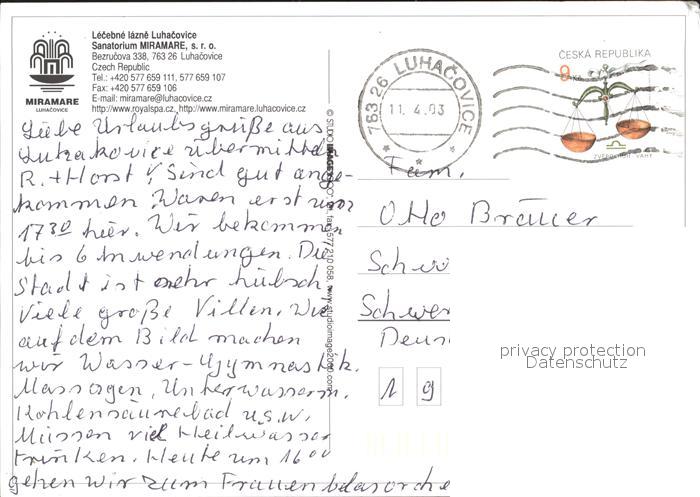 Léčebné lázně Luhačovice
Sanatorium MIRAMARE, s. r. o.
Bezručova 338, 763 26 Luhačovice
Czech Republic
Tel.: +420 577 659 111, 577 659 107
Fax: +420 577 659 106
E-mail: miramare@luhacovice.cz
http://www.royalspa.cz, http://www.miramare.luhacovice.cz
MIRAMARE
LUHAČOVICE
Liebe Urlaubsgrüße aus
Luhakovice übermitteln
R. + Horst. Sind gut ange-
kommen. Waren erst um
17 30 hier. Wir bekommen
bis 6 Anwendungen. Die
Stadt ist sehr hübsch
Viele große Villen. Wie
auf dem Bild machen
wir Wasser-Gymnastik.
Massagen, Unterwasserm.
Kohlensäurebad u.s.w.
Müssen viel Heilwasser
trinken. Heute um 16 00
gehen wir zum Frauenblasorche
763 26 LUHAČOVICE
11.4.03
ČESKÁ REPUBLIKA
9 Kč
ZVĚROKRUH VÁHY
Fam.
Otto Bräuer
Schw
Schwer
Deu
1 9
privacy protection
Datenschutz